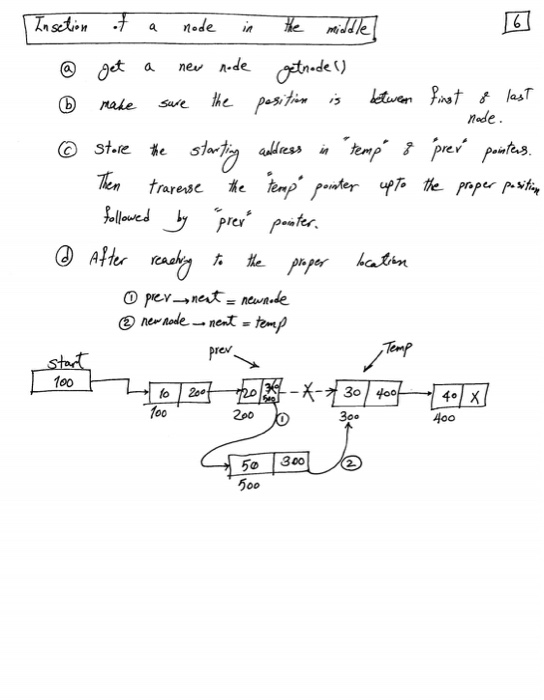 Insetion of a node in the middle
6
(a) get a new node getnode()
(b) make sure the position is between first & last
node.
(c) store the starting address in "temp" & "prev" pointers.
Then traverse the "temp" pointer upto the proper position
followed by "prev" pointer.
(d) After reachg to the proper location
(1) prev → next = newnode
(2) newnode → next = temp
start prev Temp
100
10 200 20 300 500 X 30 400 40 X
100 200 (1) 300 400
50 300 (2)
500